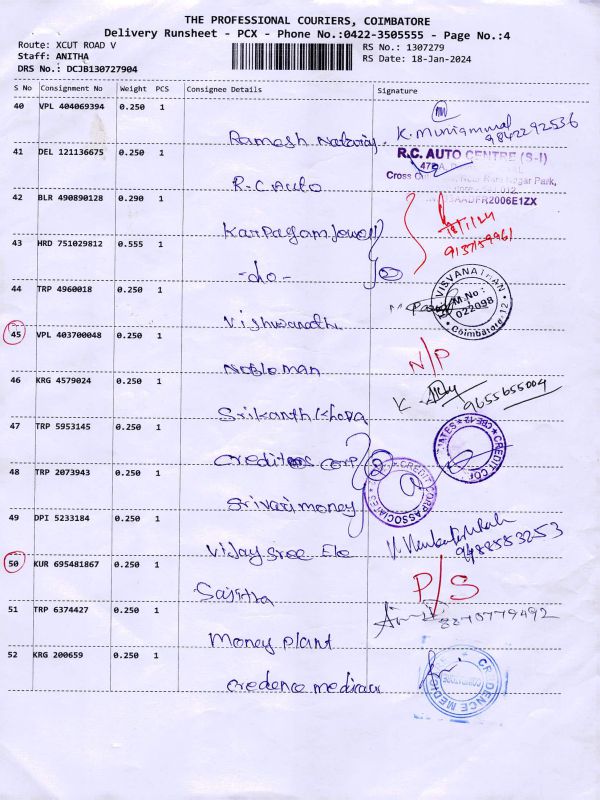 THE PROFESSIONAL COURIERS, COIMBATORE
Delivery Runsheet - PCX - Phone No.:0422-3505555 - Page No.:4
Route: XCUT ROAD V
RS No.: 1307279
Staff: ANITHA
RS Date: 18-Jan-2024
DRS No.: DCJB130727904
S No Consignment No Weight PCS Consignee Details Signature
40 VPL 404069394 0.250 1
Ramesh K. Muniammal 9842292536
41 DEL 121136675 0.250 1
R.C. Auto R.C. AUTO CENTRE (S-I)
Nagar Park,
42 BLR 490890128 0.290 1
AADFR2006E1ZX
Karpagam Jowell
43 HRD 751029812 0.555 1
9137159961
-do- 2
44 TRP 4960018 0.250 1
Vishwanath VISVANATHAN M.No: 022098 Coimbatore-12
45 VPL 403700048 0.250 1
Nobleman N/P
46 KRG 4579024 0.250 1
Srikanth Khoda K. 9655655004
47 TRP 5953145 0.250 1
Creditons Corp 2 CREDIT CORP ASSOCIATES
48 TRP 2073943 0.250 1
Srivari money
49 DPI 5233184 0.250 1
Vijay Sree Ele V. Venkatachalam 9488553253
50 KUR 695481867 0.250 1
Sajitha P/S
51 TRP 6374427 0.250 1
Money plant 8270779492
52 KRG 200659 0.250 1
Credence CREDENCE